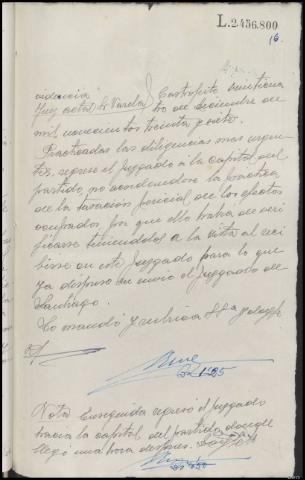 L.2456.800
16.
Juez actal Sr Varela Castropito veintiuno
de diciembre de
mil novecientos treinta y siete.
Practicadas las diligencias mas urgen
tes, regrese el Juzgado á la Capital del
partido, no acordandose la practica
de la tasación pericial de los efectos
ocupados por que ello habrá de veri
ficarse teniendolos a la vista al reci
birse en este Juzgado para lo que
ya dispuso su envio el Juzgado de
Santiago.
Lo mandó y rubrica SSª doy fé
Nota Enseguida regreso el Juzgado
hacia la capital del partido donde
llegó una hora despues. Doy fé